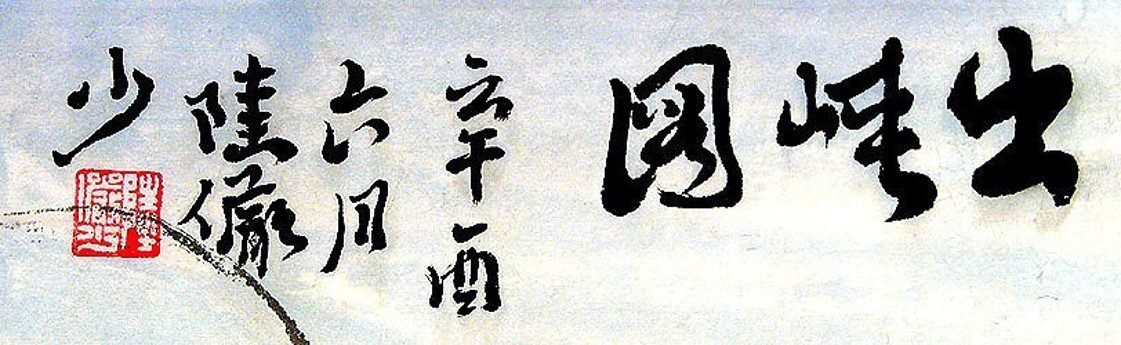 出峡圖
辛酉
六月
陸儼
少
陸儼少